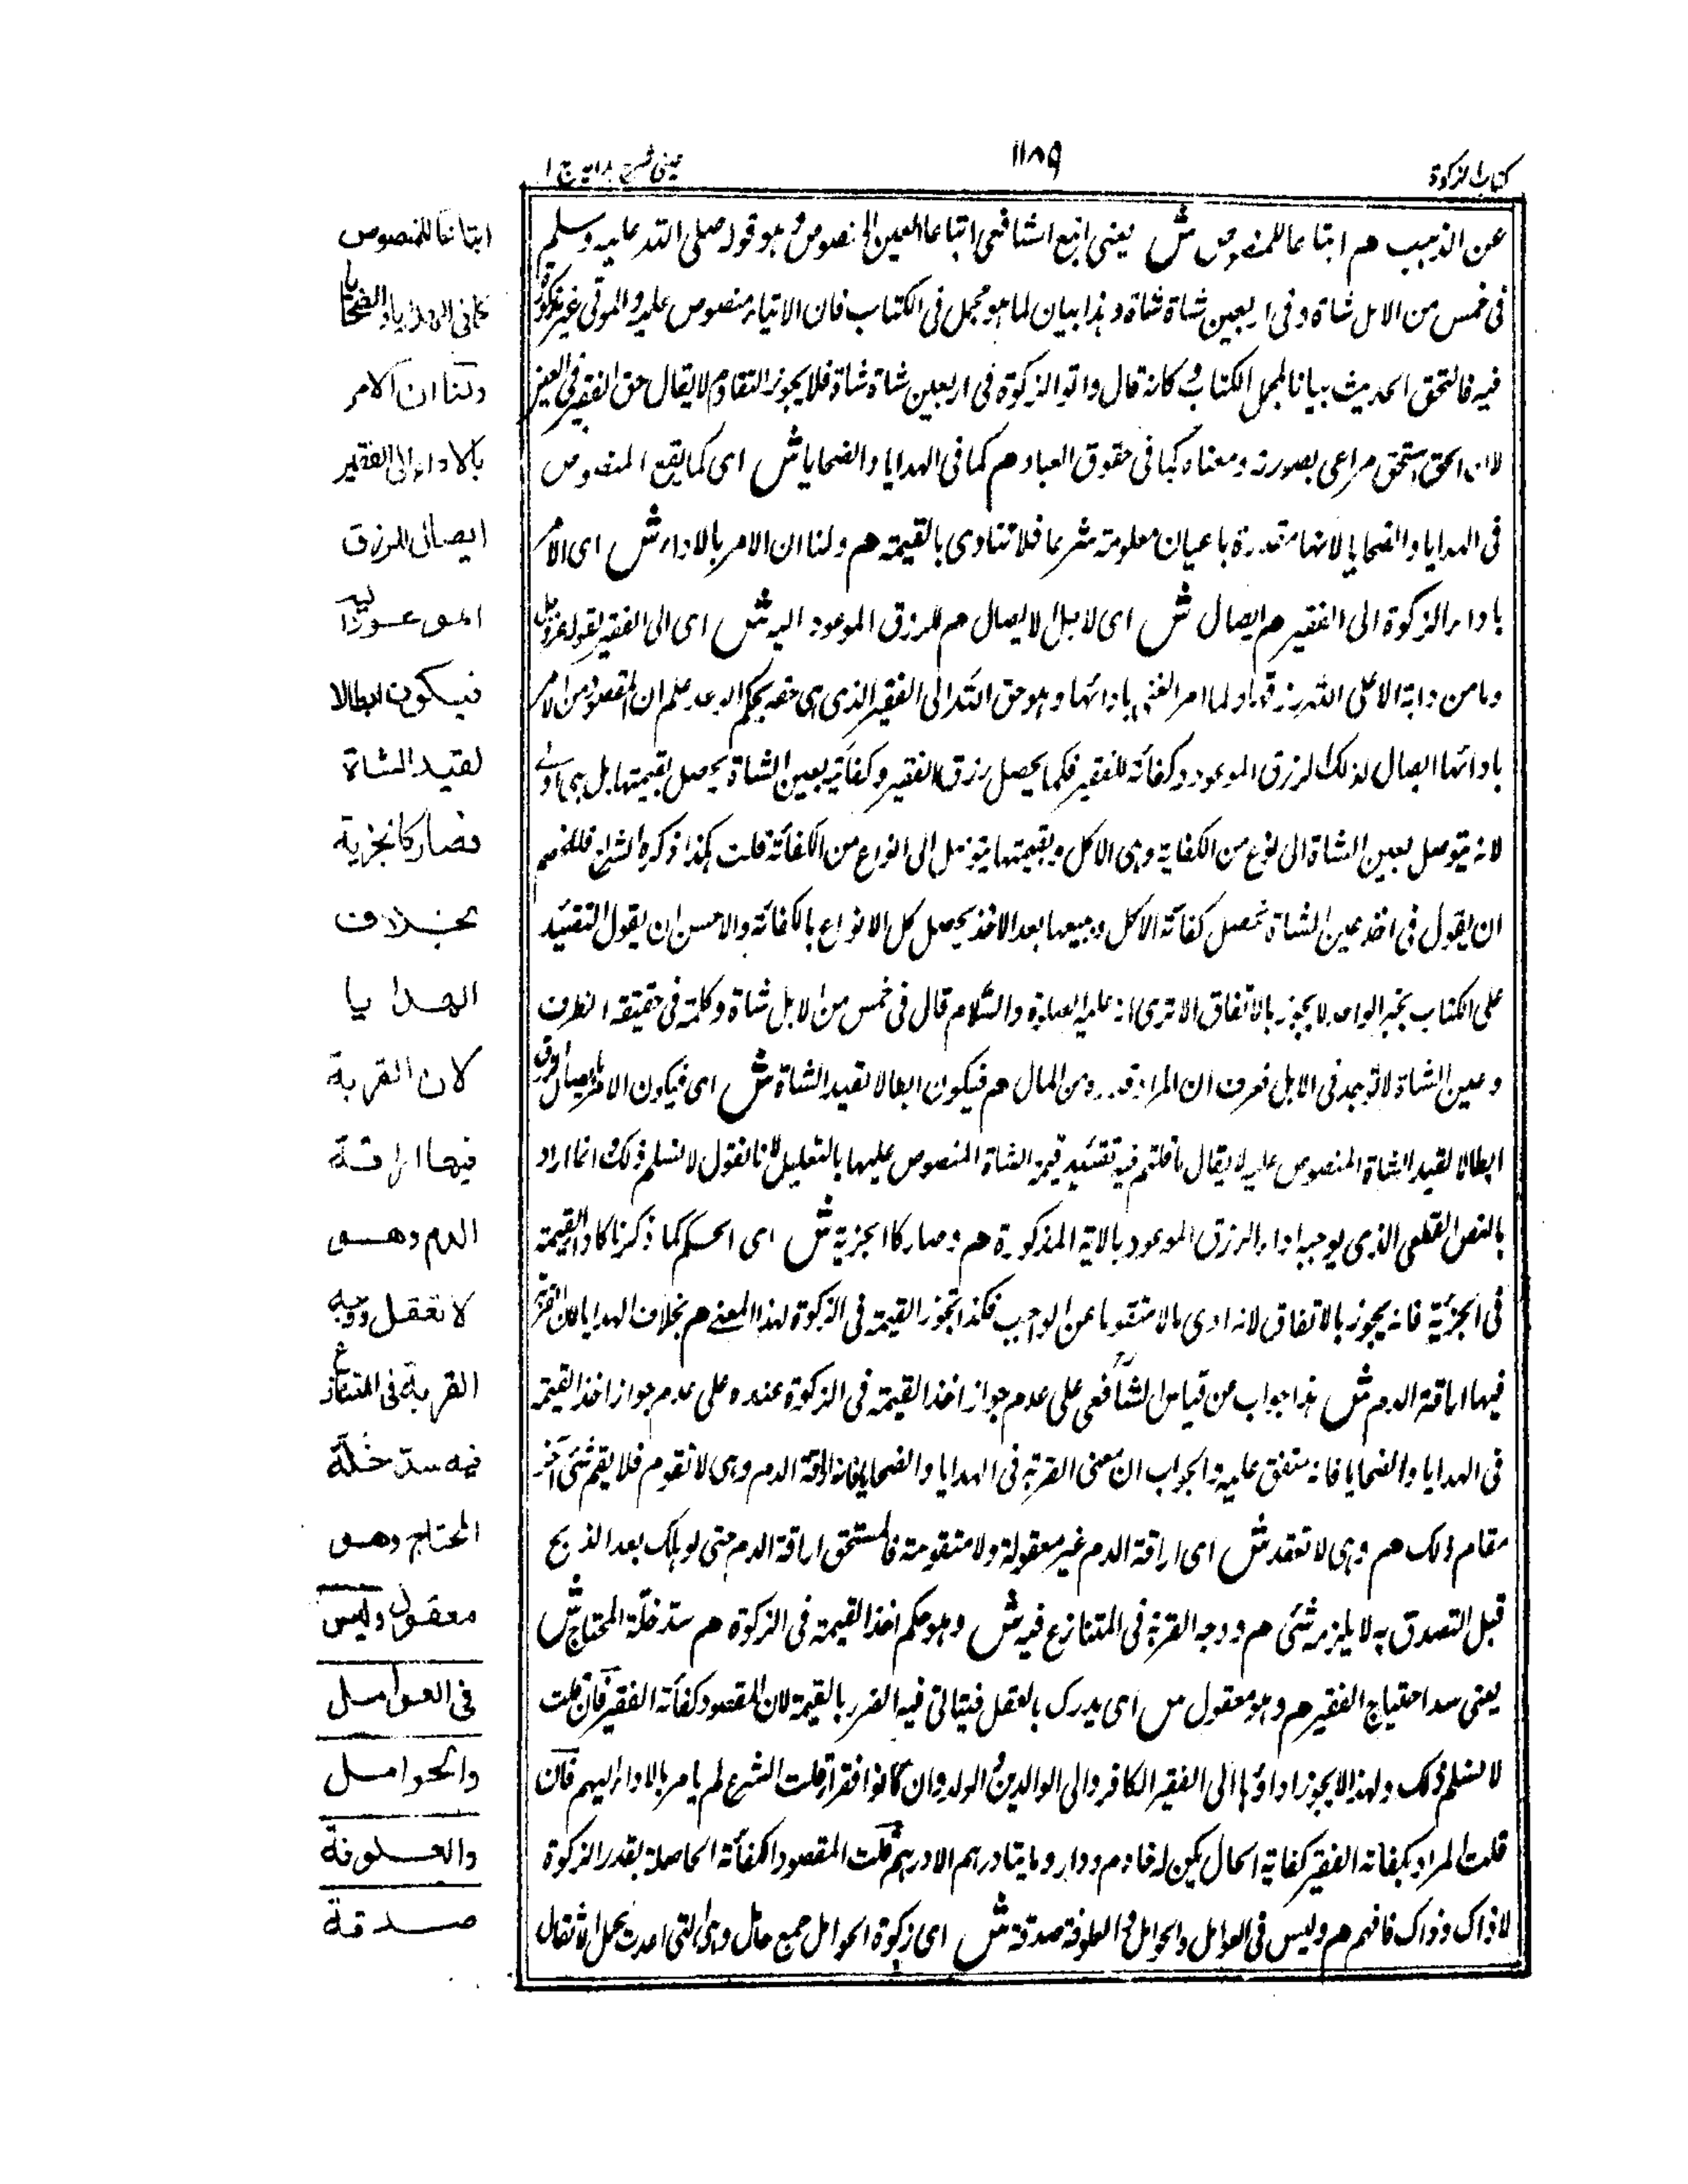 كتاب الزكوة
١١٨٩
عینی شرح هدایه ج ۱
عن الذهب هم اتباعا للمنصوص ش يعنی اتبع الشافعی اتباعا لعین المنصوص وهو قوله صلی الله علیه وسلم
فی خمس من الابل شاة وفی اربعین شاة شاة وهذا بیان لما هو مجمل فی الکتاب فان الایتاء منصوص علیه والموتی غیر مذکور
فیه فالتحق الحدیث بیانا لمجمل الکتاب کانه قال واتوا الزکوة فی اربعین شاة شاة فلا یجوز لا یقال حق الفقیر فی العین
لان الحق المستحق مراعی بصورته ومعناه کما فی حقوق العباد هم کما فی الهدایا والضحایا ش ای کما یقع المنصوص
فی الهدایا والضحایا لانها مقدرة باعیان معلومة شرعا فلا تتادی بالقیمة هم ولنا ان الامر بالاداء ش ای الامر
باداء الزکوة الی الفقیر هم ایصال ش ای لاجل الایصال هم للرزق الموعود الیه ش ای الی الفقیر بقوله عز وجل
وما من دابة الا علی الله رزقها ولما امر الغنی بادائها وهو حق الله الی الفقیر الذی هی حقه بحکم الوعد علم ان المقصود من الامر
بادائها ایصال لذلک الرزق الموعود وکفائة للفقیر فکما یحصل رزق الفقیر وکفایته بعین الشاة یحصل بقیمتها بل هی اولی
لانه یتوصل بعین الشاة الی نوع من الکفایة وهی الاکل وبقیمتها یتوصل الی انواع من الکفائة قلت هکذا ذکره الشراح فللخصم
ان یقول فی اخذ عین الشاة تحصل کفائة الاکل وبیعها بعد الاخذ یحصل کل الانواع بالکفائة والاحسن ان یقول التقیید
علی الکتاب بخبر الواحد لا یجوز بالاتفاق الا تری انه علیه الصلوة والسلام قال فی خمس من الابل شاة وکلمة فی حقیقة الظرف
وعین الشاة لا توجد فی الابل فعرف ان المراد قدره من المال هم فیکون ابطالا لقید الشاة ش ای فیکون الامر بایصال الرزق
ابطالا لقید الشاة المنصوص علیه لا یقال ما قلتم فیه تقیید قیمة الشاة المنصوص علیها بالتعلیل لانا نقول لا نسلم ذلک وانما اراد
بالنص القطعی الذی یوجب اداء الرزق الموعود بالایة المذکورة هم وصار کالجزیة ش ای الحکم کما ذکرنا کاداء القیمة
فی الجزیة فانه یجوز بالاتفاق لانه ادی مالا متقوما عن الواجب فکذا تجوز القیمة فی الزکوة لهذا المعنی هم بخلاف الهدایا لان القربة
فیها اراقة الدم ش هذا جواب عن قیاس الشافعی علی عدم جواز اخذ القیمة فی الزکوة عنده علی عدم جواز اخذ القیمة
فی الهدایا والضحایا فانه متفق علیه والجواب ان معنی القربة فی الهدایا والضحایا فانه اراقة الدم وهی لا تقوم فلا یقوم شئ آخر
مقام ذلک هم وهی لا تعقد ش ای اراقة الدم غیر معقولة ولا متقومة فالمستحق اراقة الدم حتی لو هلک بعد الذبح
قبل التصدق به لا یلزمه شئ هم ووجه القربة فی المتنازع فیه ش وهو حکم اخذ القیمة فی الزکوة هم سد خلة المحتاج ش
یعنی سد احتیاج الفقیر هم وهو معقول ش ای یدرک بالعقل بالقیمة لان المقصود کفائة الفقیر فان قلت
لا نسلم ذلک ولهذا لا یجوز اداؤها الی الفقیر الکافر والی الوالدین والولد وان کانوا فقراء قلت الشرع لم یامر بالاداء الیهم فان
قلت المراد بکفائة الفقیر کفایة الحال یکن له خادم ودار وما یتا درهم الا درهم قلت المقصود الکفائة الحاصلة بقدر الزکوة
لا ذاک وذاک فافهم هم ولیس فی العوامل والحوامل والعلوفة صدقة ش ای زکوة الحوامل جمع حامل وهی التی اعدت لحمل الاثقال
اتباعا للمنصوص
کما فی الهدایا والضحایا
ولنا ان الامر
بالاداء الی الفقیر
ایصال للرزق
الموعود الیه
فیکون ابطالا
لقید الشاة
فصار کالجزیة
بخلاف
الهدایا
لان القربة
فیها اراقة
الدم وهی
لا تعقل ووجه
القربة فی المتنازع
فیه سد خلة
المحتاج وهو
معقول ولیس
فی العوامل
والحوامل
والعلوفة
صدقة